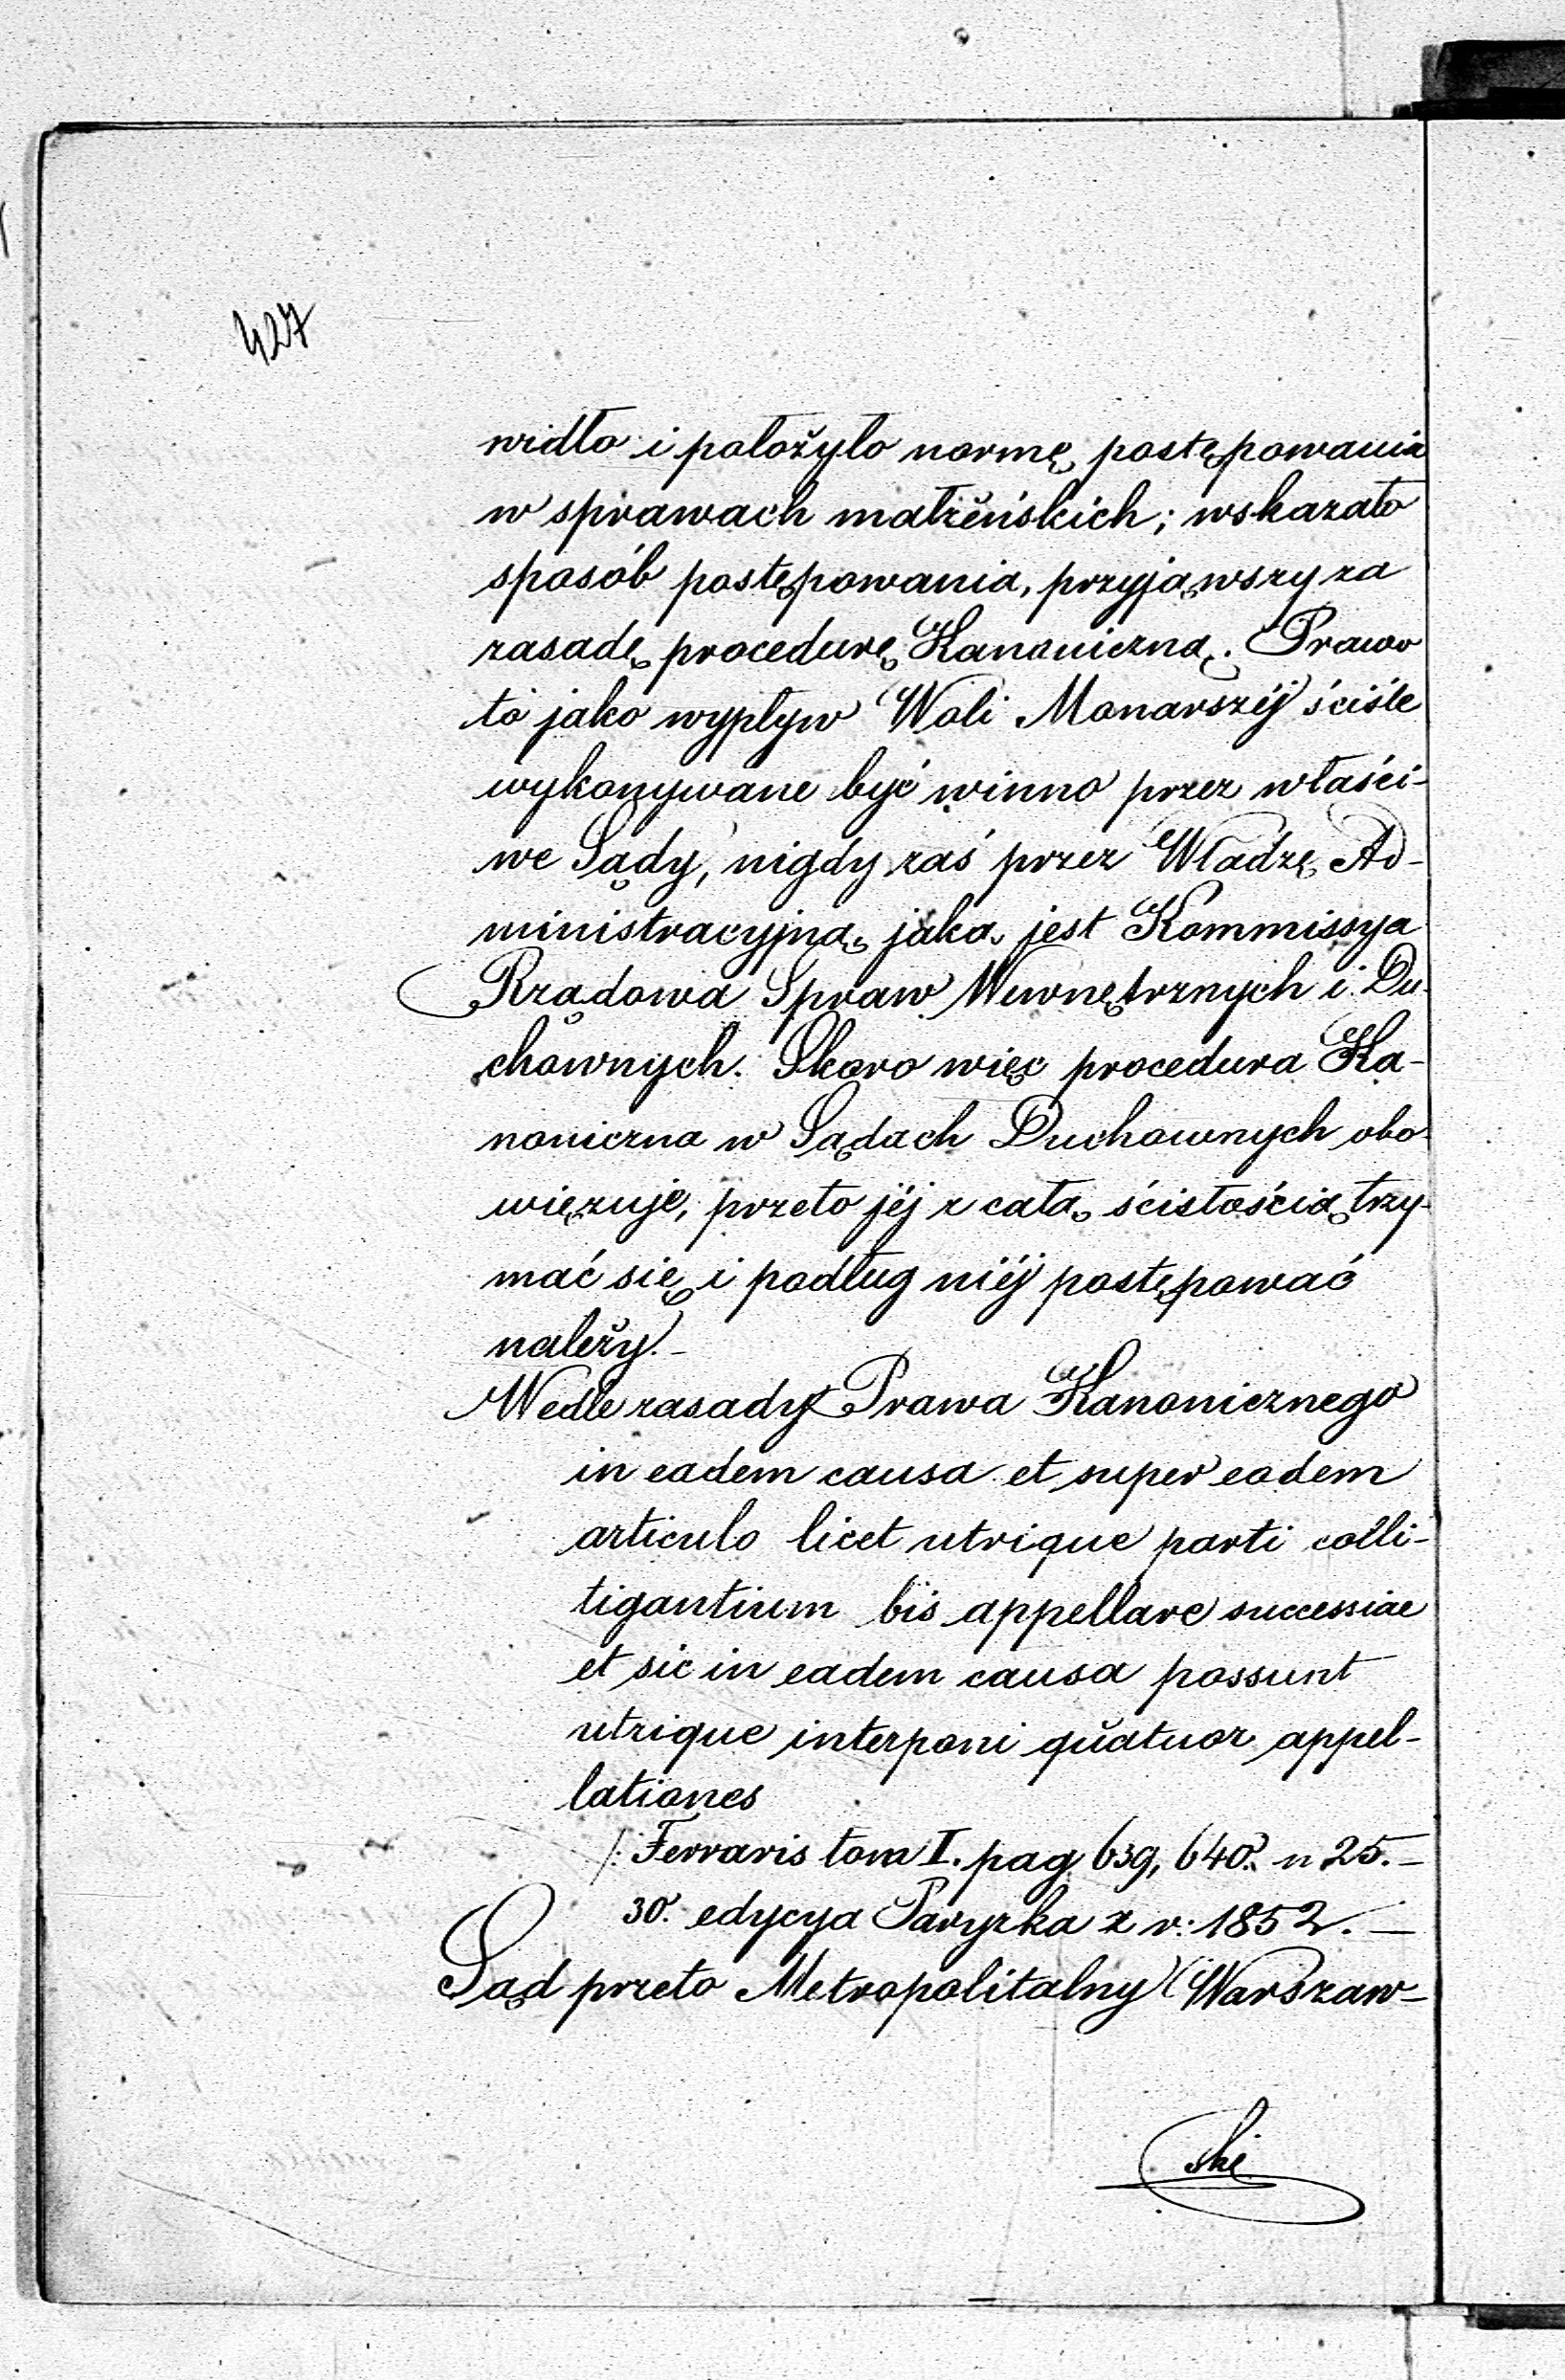 427
widło i położyło normę postępowania
w sprawach małżeńskich; wskazało
sposób postępowania, przyjąwszy za
zasadę procedurę Kanoniczną. Prawo
to jako wypływ Woli Monarszéj ściśle
wykonywane być winno przez właści-
we Sądy, nigdy zaś przez Władzę Ad-
ministracyjną, jaką jest Kommissya
Rządowa Spraw Wewnętrznych i Du-
chownych. Skoro więc procedura Ka-
noniczna w Sądach Duchownych obo-
więzuje, przeto jéj z całą ścisłością trzy-
mać się i podług niéj postępować
należy.-
Wedle zasady Prawa Kanonicznego
in eadem causa et super eodem
articulo licet utrique parti colli-
tigantium bis appellare successiae
et sic in eadem causa possunt
utrique interponi quatuor appel-
lationes
/: Ferraris tom I. pag. 639, 640. n 25.-
30. edycya Paryzka z r: 1852.-
Sąd przeto Metropolitalny Warszaw-
ski